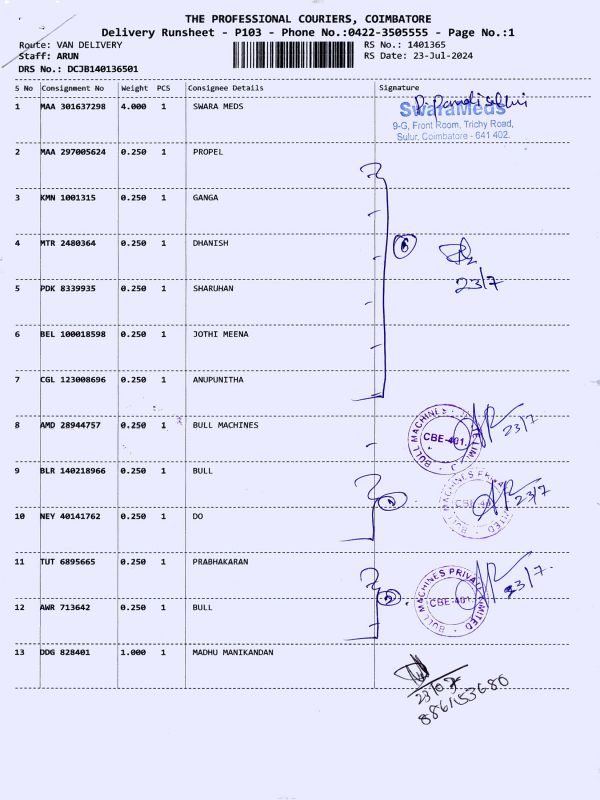 THE PROFESSIONAL COURIERS, COIMBATORE
Delivery Runsheet - P103 - Phone No.:0422-3505555 - Page No.:1
Route: VAN DELIVERY RS No.: 1401365
Staff: ARUN RS Date: 23-Jul-2024
DRS No.: DCJB140136501
S No Consignment No Weight PCS Consignee Details Signature
1 MAA 301637298 4.000 1 SWARA MEDS
SwaraMeds
9-G, Front Room, Trichy Road,
Sulur, Coimbatore - 641 402.
2 MAA 297005624 0.250 1 PROPEL
3 KMN 1001315 0.250 1 GANGA
4 MTR 2480364 0.250 1 DHANISH
6
23/7
5 PDK 8339935 0.250 1 SHARUHAN
6 BEL 100018598 0.250 1 JOTHI MEENA
7 CGL 123008696 0.250 1 ANUPUNITHA
8 AMD 28944757 0.250 1 BULL MACHINES
BULL MACHINES
CBE-401.
23/7
9 BLR 140218966 0.250 1 BULL
23/7
10 NEY 40141762 0.250 1 DO
11 TUT 6895665 0.250 1 PRABHAKARAN
BULL MACHINES PRIVATE LIMITED
CBE-401.
23/7.
12 AWR 713642 0.250 1 BULL
13 DDG 828401 1.000 1 MADHU MANIKANDAN